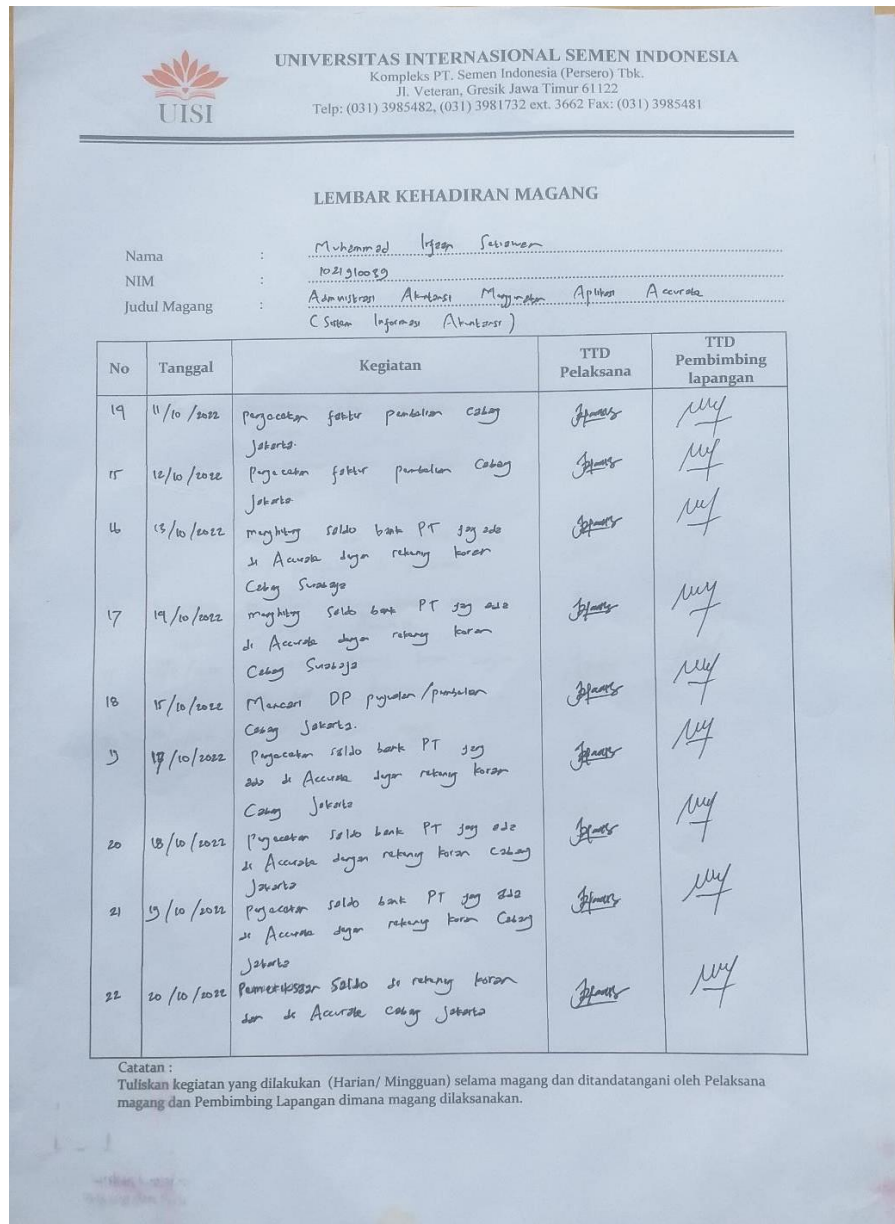 UISI
UNIVERSITAS INTERNASIONAL SEMEN INDONESIA
Kompleks PT. Semen Indonesia (Persero) Tbk.
Jl. Veteran, Gresik Jawa Timur 61122
Telp: (031) 3985482, (031) 3981732 ext. 3662 Fax: (031) 3985481
LEMBAR KEHADIRAN MAGANG
Nama : Muhammad Irfaan Setiawan
NIM : 1021910039
Judul Magang : Administrasi Akuntansi Menggunakan Aplikasi Accurate
(Sistem Informasi Akuntansi)
No Tanggal Kegiatan TTD Pelaksana TTD Pembimbing lapangan
14 11/10/2022 Pengecekan faktur pembelian Cabang
Jakarta.
15 12/10/2022 Pengecekan faktur pembelian Cabang
Jakarta
16 13/10/2022 menghitung saldo bank PT yang ada
di Accurate dengan rekening koran
Cabang Surabaya
17 14/10/2022 menghitung saldo bank PT yang ada
di Accurate dengan rekening koran
Cabang Surabaya
18 15/10/2022 Mencari DP penjualan/pembelian
Cabang Jakarta.
19 17/10/2022 Pengecekan saldo bank PT yang
ada di Accurate dengan rekening koran
Cabang Jakarta
20 18/10/2022 Pengecekan saldo bank PT yang ada
di Accurate dengan rekening koran Cabang
Jakarta
21 19/10/2022 Pengecekan saldo bank PT yang ada
di Accurate dengan rekening koran Cabang
Jakarta
22 20/10/2022 Pemeriksaan saldo di rekening koran
dan di Accurate cabang Jakarta
Catatan :
Tuliskan kegiatan yang dilakukan (Harian/ Mingguan) selama magang dan ditandatangani oleh Pelaksana
magang dan Pembimbing Lapangan dimana magang dilaksanakan.